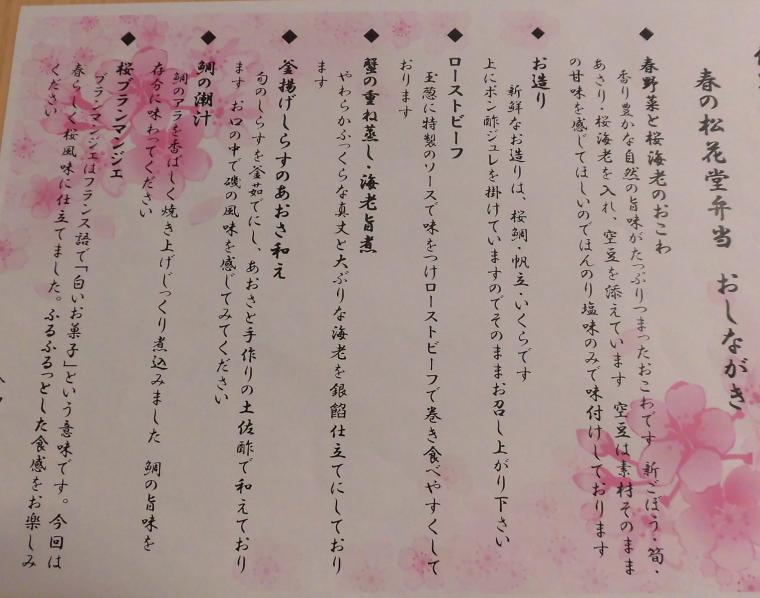 春の松花堂弁当 おしながき
◆ 春野菜と桜海老のおこわ
香り豊かな自然の旨味がたっぷりつまったおこわです 新ごぼう・筍・
あさり・桜海老を入れ、空豆を添えています 空豆は素材そのまま
の甘味を感じてほしいのでほんのり塩味のみで味付けしております
◆ お造り
新鮮なお造りは、桜鯛・帆立・いくらです
上にポン酢ジュレを掛けていますのでそのままお召し上がり下さい
◆ ローストビーフ
玉葱に特製のソースで味をつけローストビーフで巻き食べやすくして
おります
◆ 蟹の重ね蒸し 海老旨煮
やわらかふっくらな真丈と大ぶりな海老を銀餡仕立てにしており
ます
◆ 釜揚げしらすのあおさ和え
旬のしらすを釜茹でにし、あおさと手作りの土佐酢で和えており
ます お口の中で磯の風味を感じてみてください
◆ 鯛の潮汁
鯛のアラを香ばしく焼き上げじっくり煮込みました 鯛の旨味を
存分に味わってください
◆ 桜ブランマンジェ
ブランマンジェはフランス語で「白いお菓子」という意味です。今回は
春らしく桜風味に仕立てました。ふるふるっとした食感をお楽しみ
ください